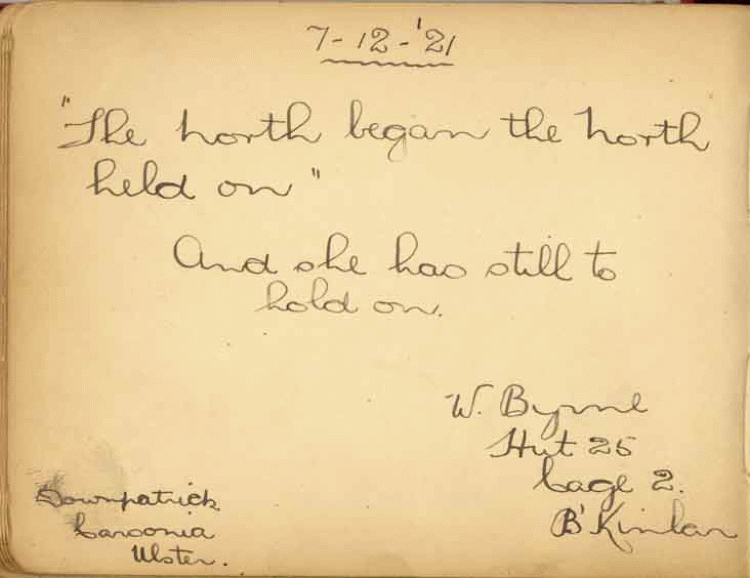 7-12-'21
"The North began the North
held on"
And she has still to
hold on.
W. Byrne
Hut 25
Cage 2.
B'Kinlar
Downpatrick
Carsonia
Ulster.